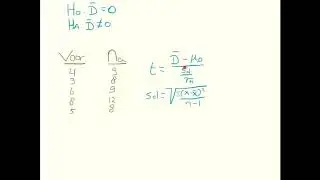 H₀ D̄ = 0
Hₐ D̄ ≠ 0
Voor Na
4 9
3 8
6 9
8 12
5 8
t = (D̄ - μ₀) / (sd / √n)
sd = √(Σ(x-x̄)² / n-1)